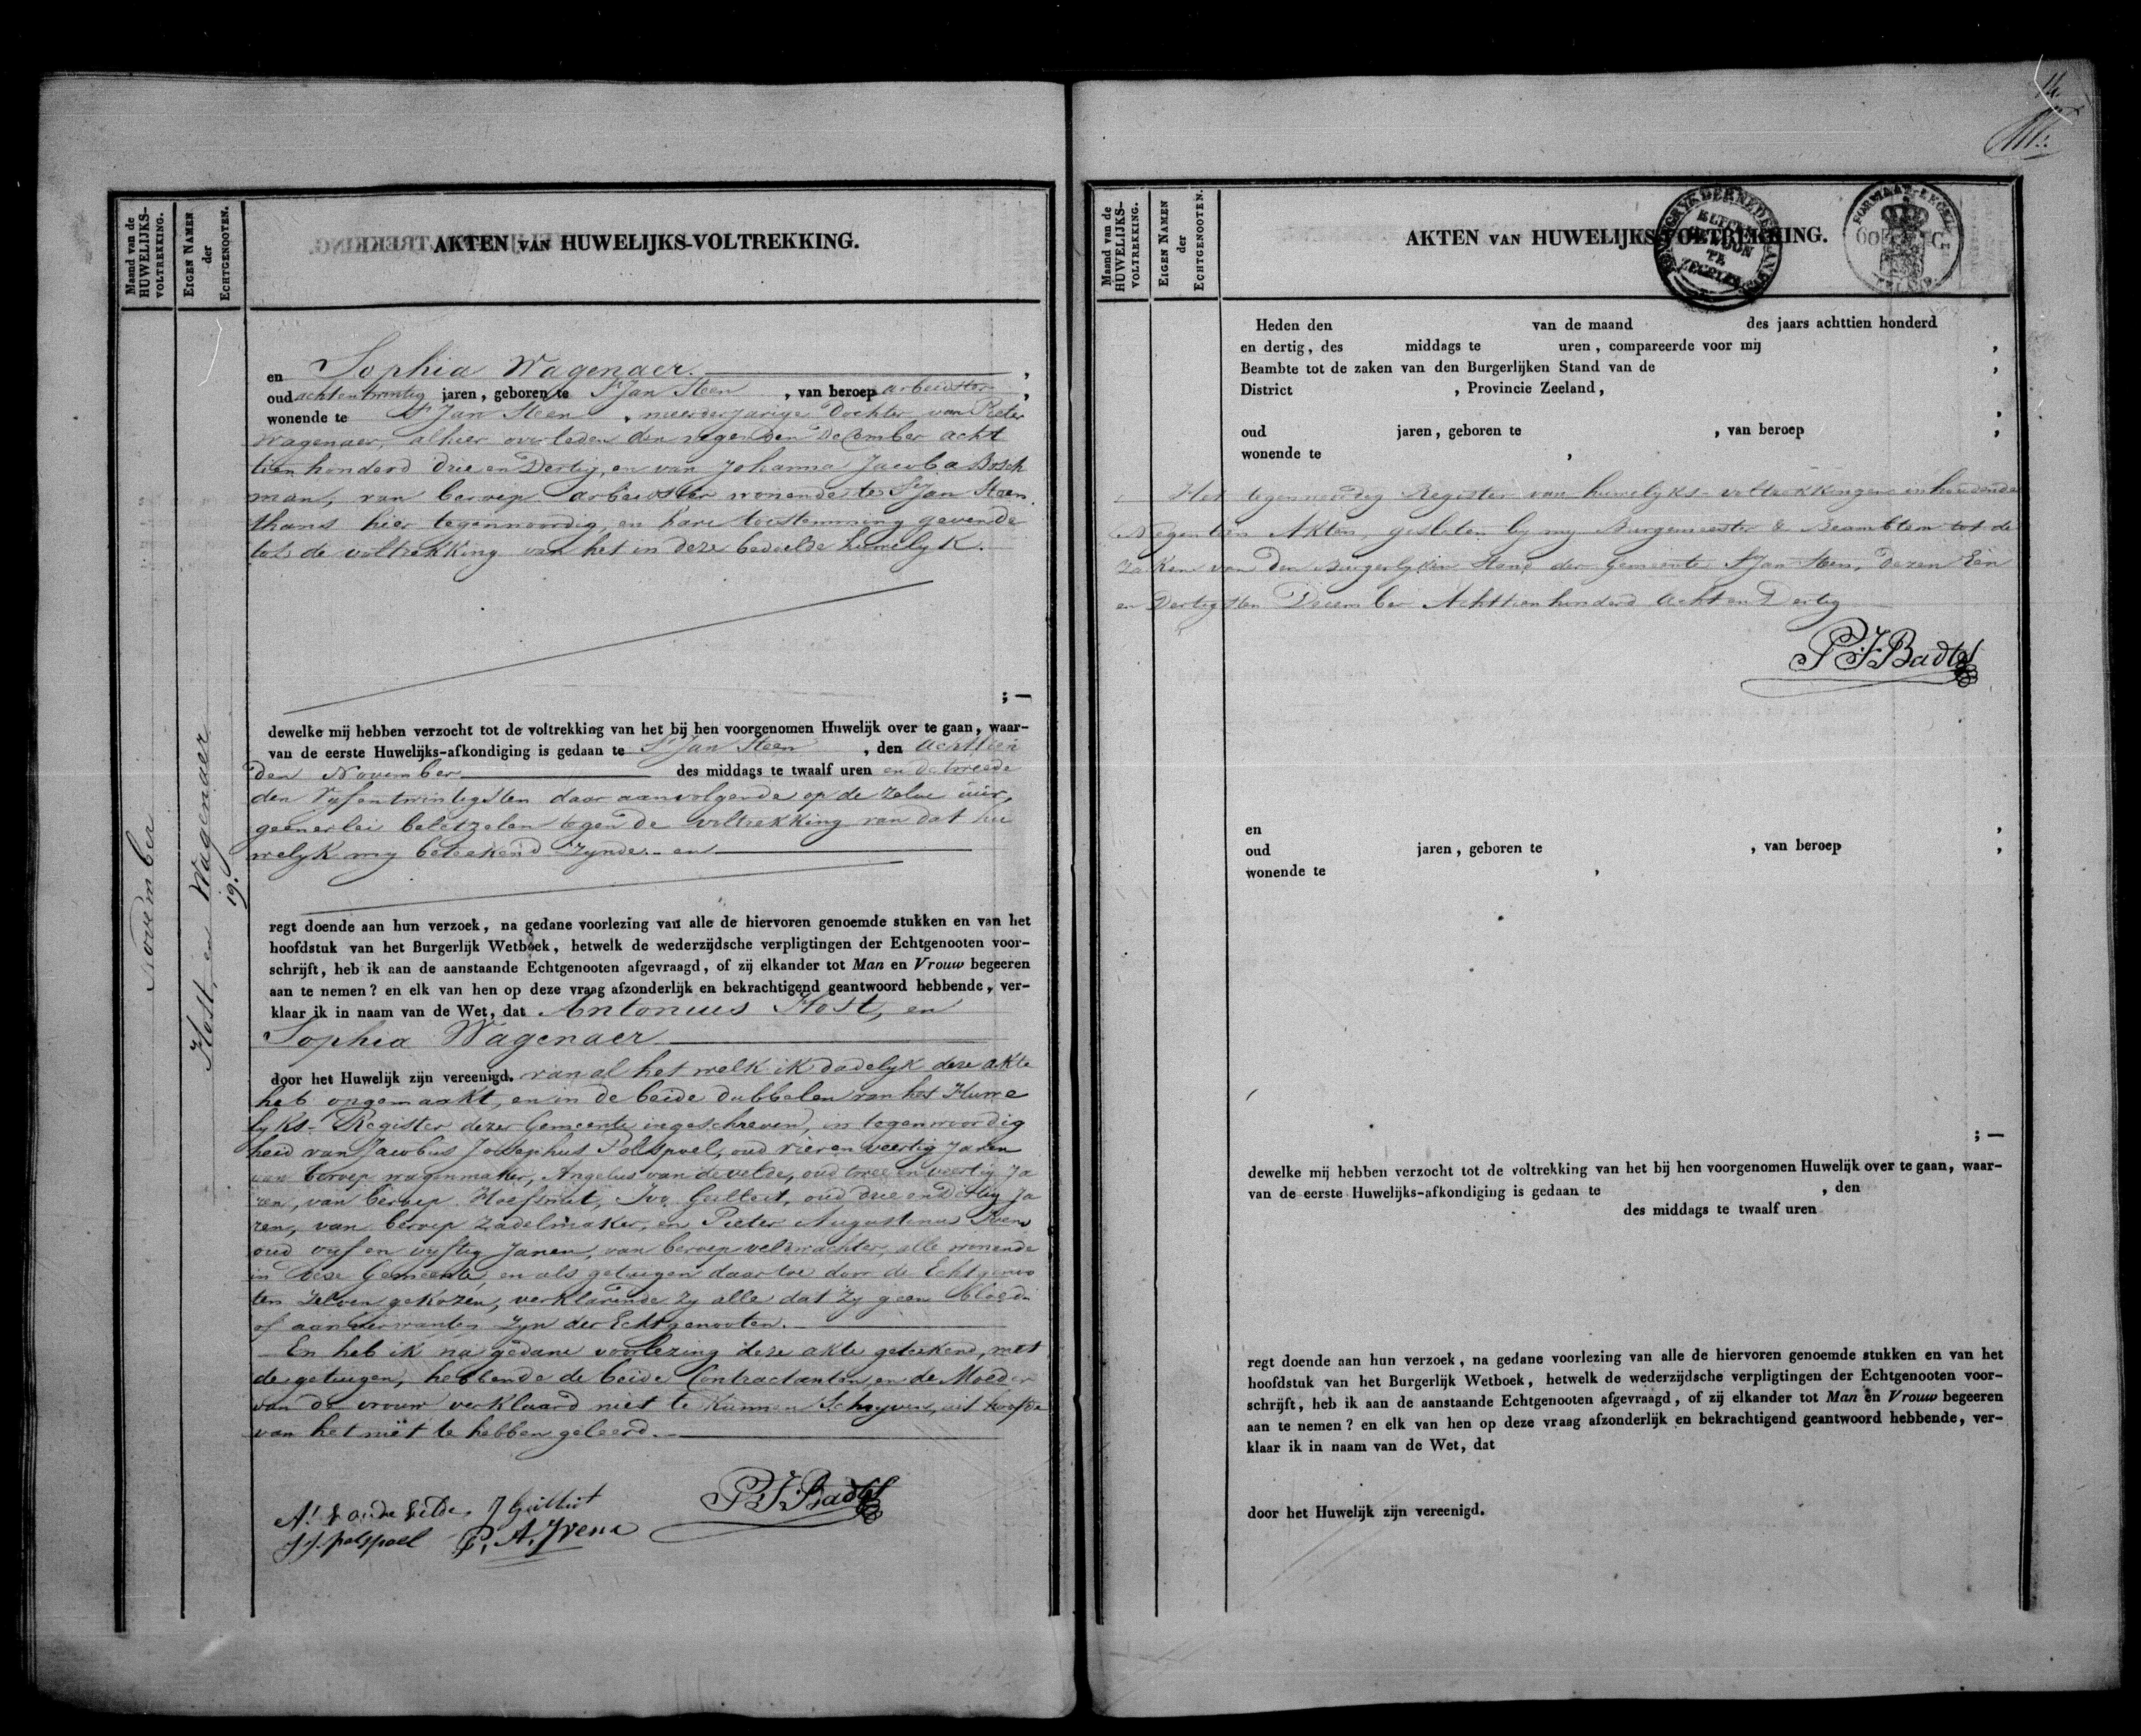 Maand van de HUWELIJKS-VOLTREKKING.
EIGEN NAMEN der ECHTGENOOTEN.
AKTEN VAN HUWELIJKS-VOLTREKKING.
November
Host, en Wagenaer
19.
en Sophia Wagenaer. ,
oud achtentwintig jaren, geboren te St Jan Steen , van beroep arbeidster ,
wonende te St Jan Steen , meerderjarige Dochter van Pieter
Wagenaer, alhier overleden den negenden December acht
tien honderd drie en Dertig, en van Johanna Jacoba Bosch
man, van beroep arbeidster wonende te St Jan Steen
thans hier tegenwoordig, en hare toestemming gevende
tot de voltrekking van het in deze bedoelde huwelyk.
; —
dewelke mij hebben verzocht tot de voltrekking van het bij hen voorgenomen Huwelijk over te gaan, waar-
van de eerste Huwelijks-afkondiging is gedaan te St Jan Steen , den achttien
den November des middags te twaalf uren en de tweede
den Vyfentwintigsten daar aanvolgende op de zelve uur,
geenerlei beletzelen tegen de voltrekking van dat hu
welyk my beteekend zynde. en
regt doende aan hun verzoek, na gedane voorlezing van alle de hiervoren genoemde stukken en van het
hoofdstuk van het Burgerlijk Wetboek, hetwelk de wederzijdsche verpligtingen der Echtgenooten voor-
schrijft, heb ik aan de aanstaande Echtgenooten afgevraagd, of zij elkander tot Man en Vrouw begeeren
aan te nemen? en elk van hen op deze vraag afzonderlijk en bekrachtigend geantwoord hebbende, ver-
klaar ik in naam van de Wet, dat Antonius Host, en
Sophia Wagenaer
door het Huwelijk zijn vereenigd. van al het welk ik dadelyk deze akte
heb opgemaakt, en in de beide dubbelen van het Huwe
lyks-Register dezer Gemeente ingeschreven, in tegenwoordig
heid van Jacobus Josephus Polspoel, oud vieren veertig Jaren
van beroep wagenmaker, Angelus van de velde, oud twee en veertig Ja
ren, van beroep Hoefsmit, Ivo Guilliot, oud drie en Dertig Ja
ren, van beroep zadelmaker, en Pieter Augustinus Ivens
oud vyf en vyftig Jaren, van beroep veldwachter, alle wonende
in deze Gemeente, en als getuigen daartoe door de Echtgenoo
ten zelven gekozen, verklarende zy alle dat zy geen bloed
of aanverwanten zyn der Echtgenooten.
En heb ik na gedane voorlezing deze akte geteekend, met
de getuigen, hebbende de beide Contractanten en de Moeder
van de vrouw verklaard niet te kunnen Schryven, uit hoofde
van het niet te hebben geleerd.
A. Vande Velde, J Guilliot PJBadts
J J. polspoel P. A. Ivens
14.
Maand van de HUWELIJKS-VOLTREKKING.
EIGEN NAMEN der ECHTGENOOTEN.
AKTEN VAN HUWELIJKS-VOLTREKKING.
Heden den van de maand des jaars achttien honderd
en dertig, des middags te uren, compareerde voor mij ,
Beambte tot de zaken van den Burgerlijken Stand van de ,
District , Provincie Zeeland,
,
oud jaren, geboren te , van beroep ,
wonende te ,
Het tegenwoordig Register van huwelyks-voltrekkingen inhoudende
Negentien Akten, gesloten by my Burgemeester & Beambten tot de
zaken van den Burgerlyken Stand der Gemeente St Jan Steen, dezen Een
en Dertigsten December Achttienhonderd Acht en Dertig
PJBadts
en ,
oud jaren, geboren te , van beroep ,
wonende te ,
; —
dewelke mij hebben verzocht tot de voltrekking van het bij hen voorgenomen Huwelijk over te gaan, waar-
van de eerste Huwelijks-afkondiging is gedaan te , den
des middags te twaalf uren
regt doende aan hun verzoek, na gedane voorlezing van alle de hiervoren genoemde stukken en van het
hoofdstuk van het Burgerlijk Wetboek, hetwelk de wederzijdsche verpligtingen der Echtgenooten voor-
schrijft, heb ik aan de aanstaande Echtgenooten afgevraagd, of zij elkander tot Man en Vrouw begeeren
aan te nemen? en elk van hen op deze vraag afzonderlijk en bekrachtigend geantwoord hebbende, ver-
klaar ik in naam van de Wet, dat
door het Huwelijk zijn vereenigd.